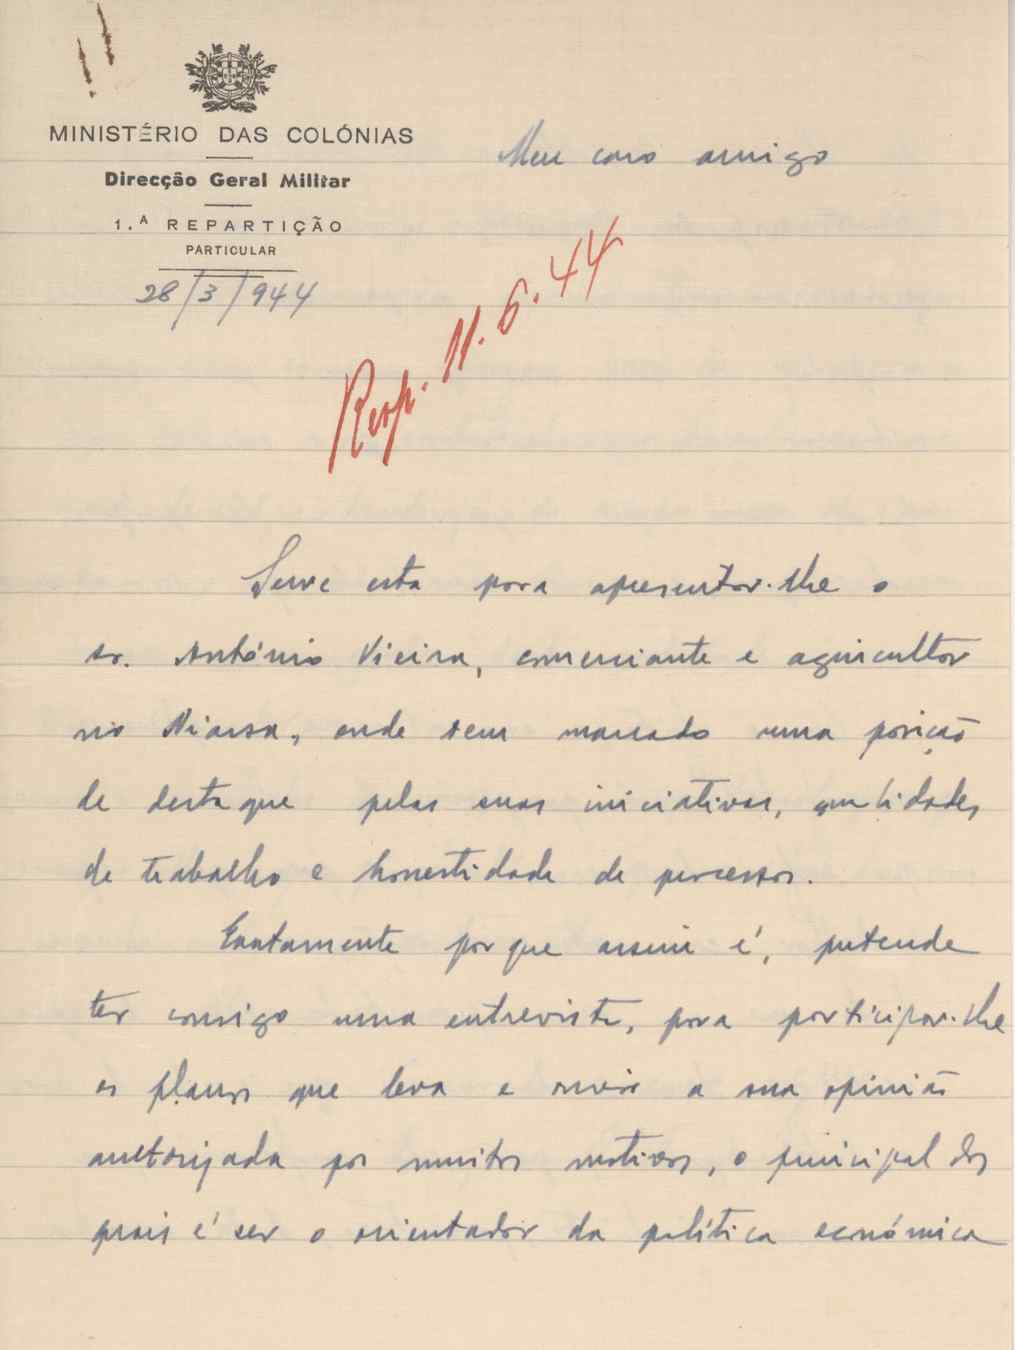 MINISTÉRIO DAS COLÓNIAS
Direcção Geral Militar
1.ª REPARTIÇÃO
PARTICULAR
28/3/944
Meu caro amigo
Resp. 11.6.44
Serve esta para apresentar-lhe o
sr. António Vieira, comerciante e agricultor
no Niassa, onde tem marcado uma posição
de destaque pelas suas iniciativas, qualidades
de trabalho e honestidade de processos.
Exatamente porque assim é, pretende
ter consigo uma entrevista, para participar-lhe
os planos que leva e ouvir a sua opinião
autorizada por muitos motivos, o principal dos
quais é ser o orientador da política económica